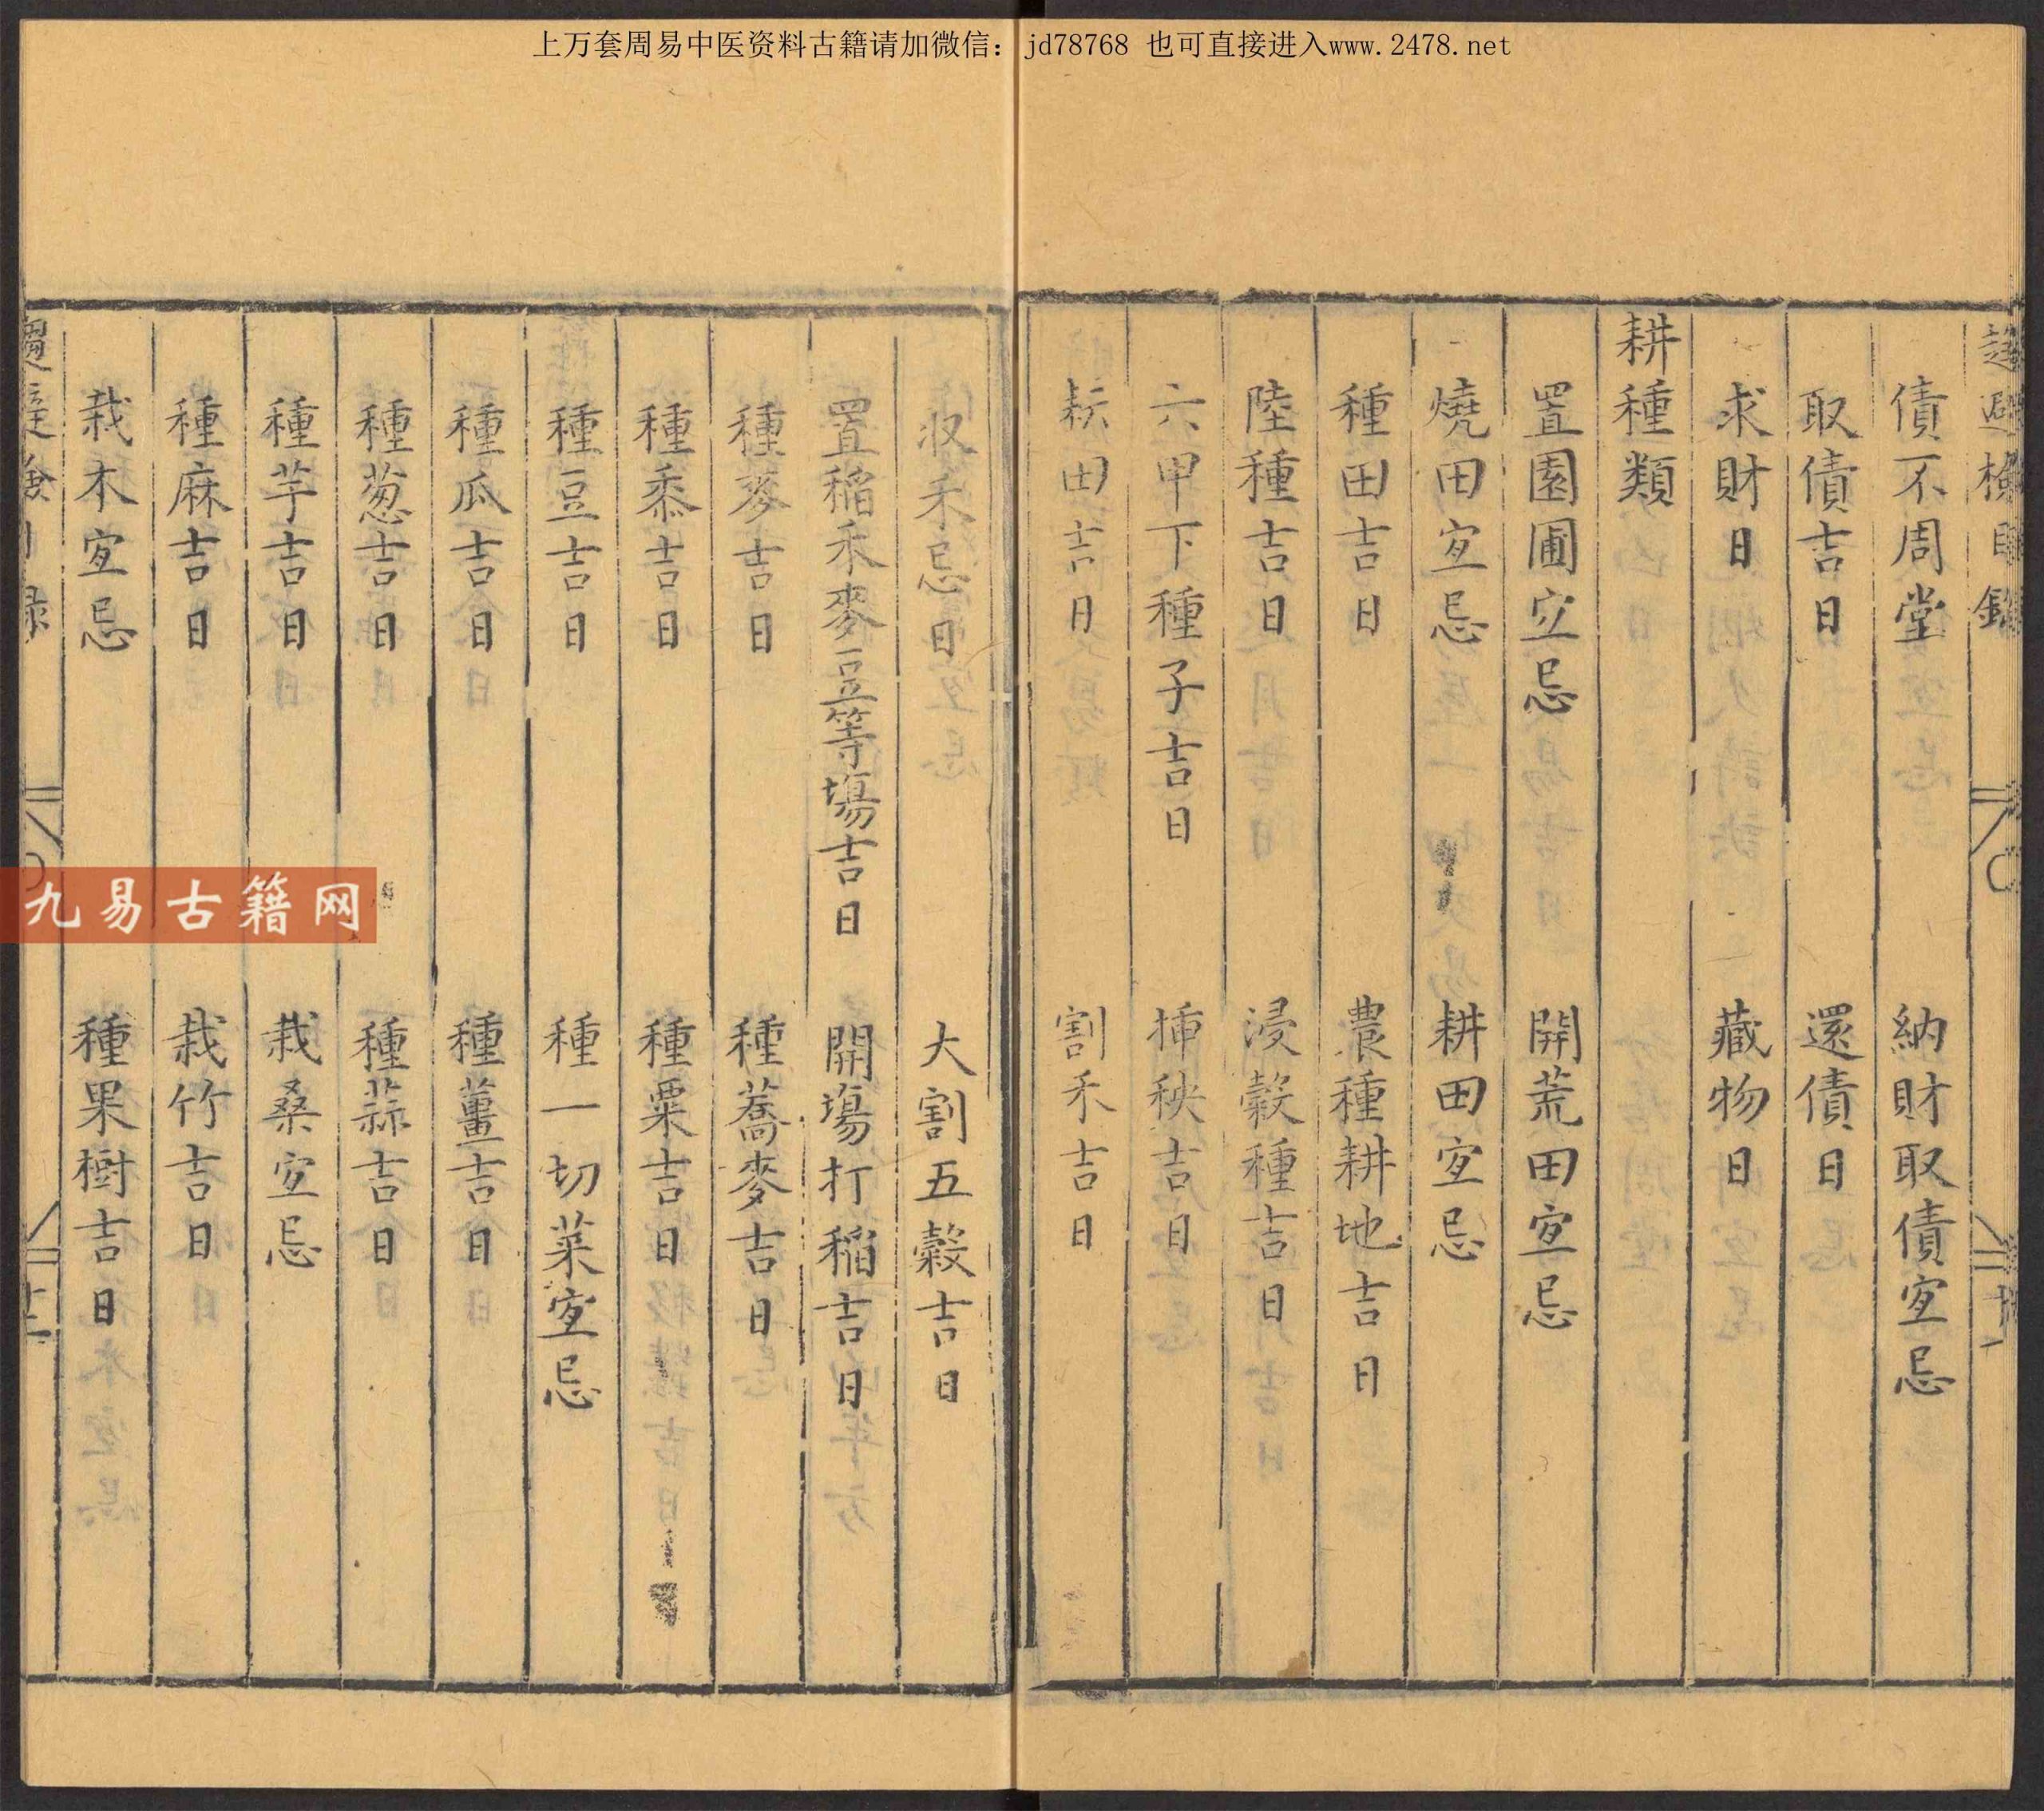 上万套周易中医资料古籍请加微信：jd78768 也可直接进入www.2478.net
趨避檢目錄
債不周堂 納財取債宜忌
取債吉日 還債日
求財日 藏物日
耕種類
置園圃宜忌 開荒田宜忌
燒田宜忌 耕田宜忌
種田吉日 農種耕地吉日
陸種吉日 浸穀種吉日
六甲下種子吉日 插秧吉日
耘田吉日 割禾吉日
收禾忌日 大割五穀吉日
置稲禾麥豆等塲吉日 開塲打稲吉日
種麥吉日 種蕎麥吉日
種黍吉日 種粟吉日
種豆吉日 種一切菜宜忌
種瓜吉日 種薑吉日
種葱吉日 種蒜吉日
種芋吉日 栽桑宜忌
種麻吉日 栽竹吉日
栽木宜忌 種果樹吉日
九易古籍网